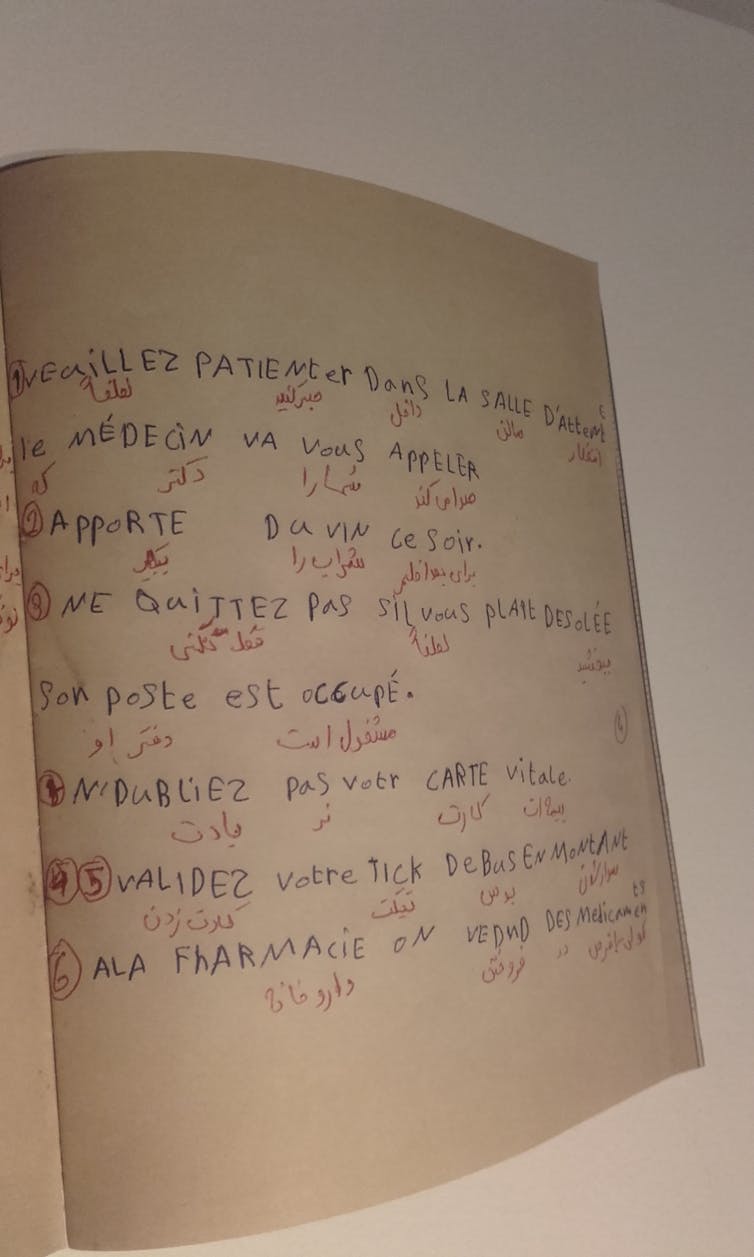 ① VEUILLEZ PATIENter Dans LA SALLE D'Attent E
لطفاً صبرکنید داخل سالن انتظار
le MÉDECIN VA Vous APPELER
که دکتر شمارا صدامی‌کند
② APPORTE DU VIN Ce Soir.
شراب را
③ NE QUITTEZ PAS SIL VOUS PLAIT DESOLÉE
قطع نکنی لطفاً ببخشید
Son poste est occupé.
دفتر او مشغول است
④ N'OUBLIEZ pas votr CARTE Vitale.
یادت نر کارت بیمه‌ات
④⑤ VALIDEZ Votre TICK De Bus EN MONTANT
کارت زدن تیکت بوس سوارشدن
⑥ ALA FhARMACIE ON VEDND DES Medicamen ts
داروخانه فروختن در